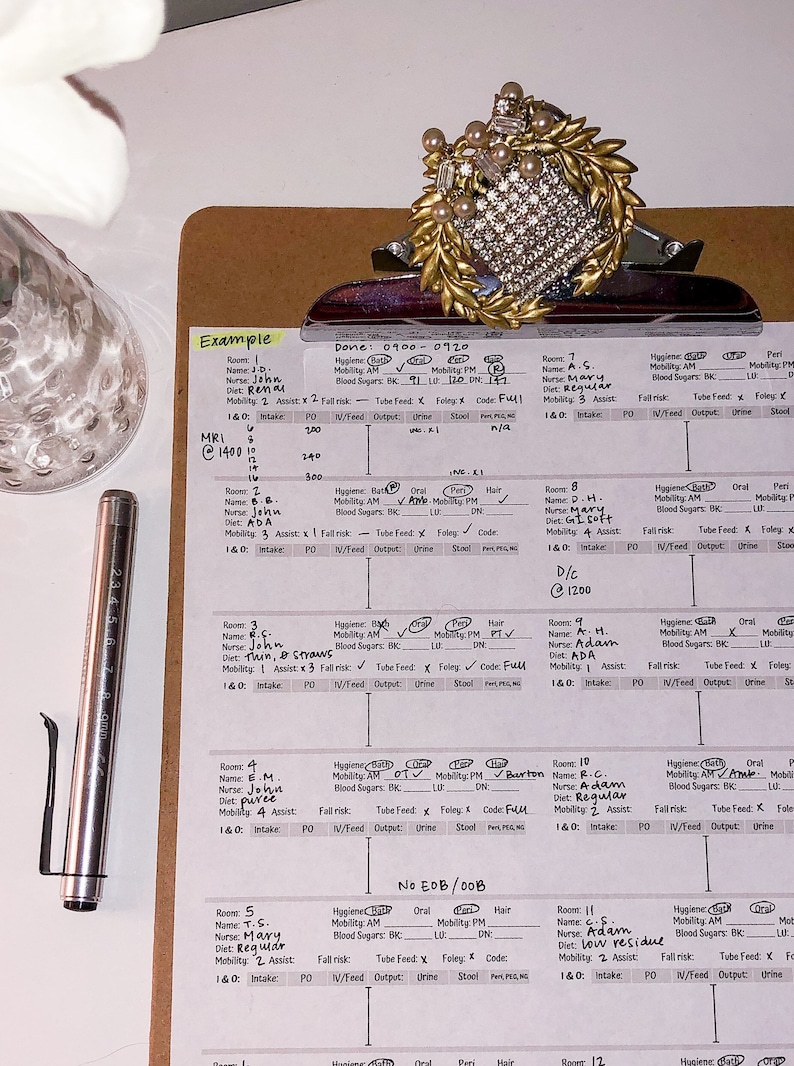 Example
Done: 0900 - 0920
Room: 1
Name: J.D.
Nurse: John
Diet: Renal
Hygiene: Bath Oral Peri Hair
Mobility: AM ✓ Mobility: PM R
Blood Sugars: BK: 91 LU: 120 DN: 147
Mobility: 2 Assist: x 2 Fall risk: — Tube Feed: x Foley: x Code: Full
I & O: Intake: PO IV/Feed Output: Urine Stool Peri, PEG, NG
6 200 inc. x1 n/a
MRI 8
@ 1400 10
12 240
14
16 300 inc. x1
Room: 2
Name: B.B.
Nurse: John
Diet: ADA
Hygiene: Bath R Oral Peri Hair
Mobility: AM ✓ Amb. Mobility: PM ✓
Blood Sugars: BK: LU: DN:
Mobility: 3 Assist: x 1 Fall risk: — Tube Feed: x Foley: ✓ Code:
I & O: Intake: PO IV/Feed Output: Urine Stool Peri, PEG, NG
Room: 3
Name: R.S.
Nurse: John
Diet: Thin, Ø straws
Hygiene: Bath Oral Peri Hair
Mobility: AM ✓ Mobility: PM PT ✓
Blood Sugars: BK: LU: DN:
Mobility: 1 Assist: x 3 Fall risk: ✓ Tube Feed: x Foley: ✓ Code: Full
I & O: Intake: PO IV/Feed Output: Urine Stool Peri, PEG, NG
Room: 4
Name: E.M.
Nurse: John
Diet: puree
Hygiene: Bath Oral Peri Hair
Mobility: AM OT ✓ Mobility: PM ✓ Barton
Blood Sugars: BK: LU: DN:
Mobility: 4 Assist: Fall risk: Tube Feed: x Foley: x Code: Full
I & O: Intake: PO IV/Feed Output: Urine Stool Peri, PEG, NG
NO EOB / OOB
Room: 5
Name: T.S.
Nurse: Mary
Diet: Regular
Hygiene: Bath Oral Peri Hair
Mobility: AM Mobility: PM
Blood Sugars: BK: LU: DN:
Mobility: 2 Assist: Fall risk: Tube Feed: x Foley: x Code:
I & O: Intake: PO IV/Feed Output: Urine Stool Peri, PEG, NG
Hygiene: Bath Oral Peri Hair
Room: 7
Name: A.S.
Nurse: Mary
Diet: Regular
Hygiene: Bath Oral Peri
Mobility: AM Mobility: PM
Blood Sugars: BK: LU:
Mobility: 3 Assist: Fall risk: Tube Feed: x Foley: x
I & O: Intake: PO IV/Feed Output: Urine
Room: 8
Name: D.H.
Nurse: Mary
Diet: GI soft
Hygiene: Bath Oral Peri
Mobility: AM Mobility: P
Blood Sugars: BK: LU:
Mobility: 4 Assist: Fall risk: Tube Feed: x Foley: x
I & O: Intake: PO IV/Feed Output: Urine
D/C
@ 1200
Room: 9
Name: A.H.
Nurse: Adam
Diet: ADA
Hygiene: Bath Oral
Mobility: AM x Mobility:
Blood Sugars: BK: LU:
Mobility: 1 Assist: Fall risk: Tube Feed: x Foley:
I & O: Intake: PO IV/Feed Output: Urine
Room: 10
Name: R.C.
Nurse: Adam
Diet: Regular
Hygiene: Bath Oral
Mobility: AM ✓ Amb.
Blood Sugars: BK: LU:
Mobility: 2 Assist: Fall risk: Tube Feed: x
I & O: Intake: PO IV/Feed Output: Urine
Room: 11
Name: C.S.
Nurse: Adam
Diet: low residue
Hygiene: Bath Oral
Mobility: AM
Blood Sugars: BK: LU:
Mobility: 2 Assist: Fall risk: Tube Feed: x
I & O: Intake: PO IV/Feed Output: Urine
Room: 12
Hygiene: Bath Oral
2 3 4 5 6 7 8 9mm